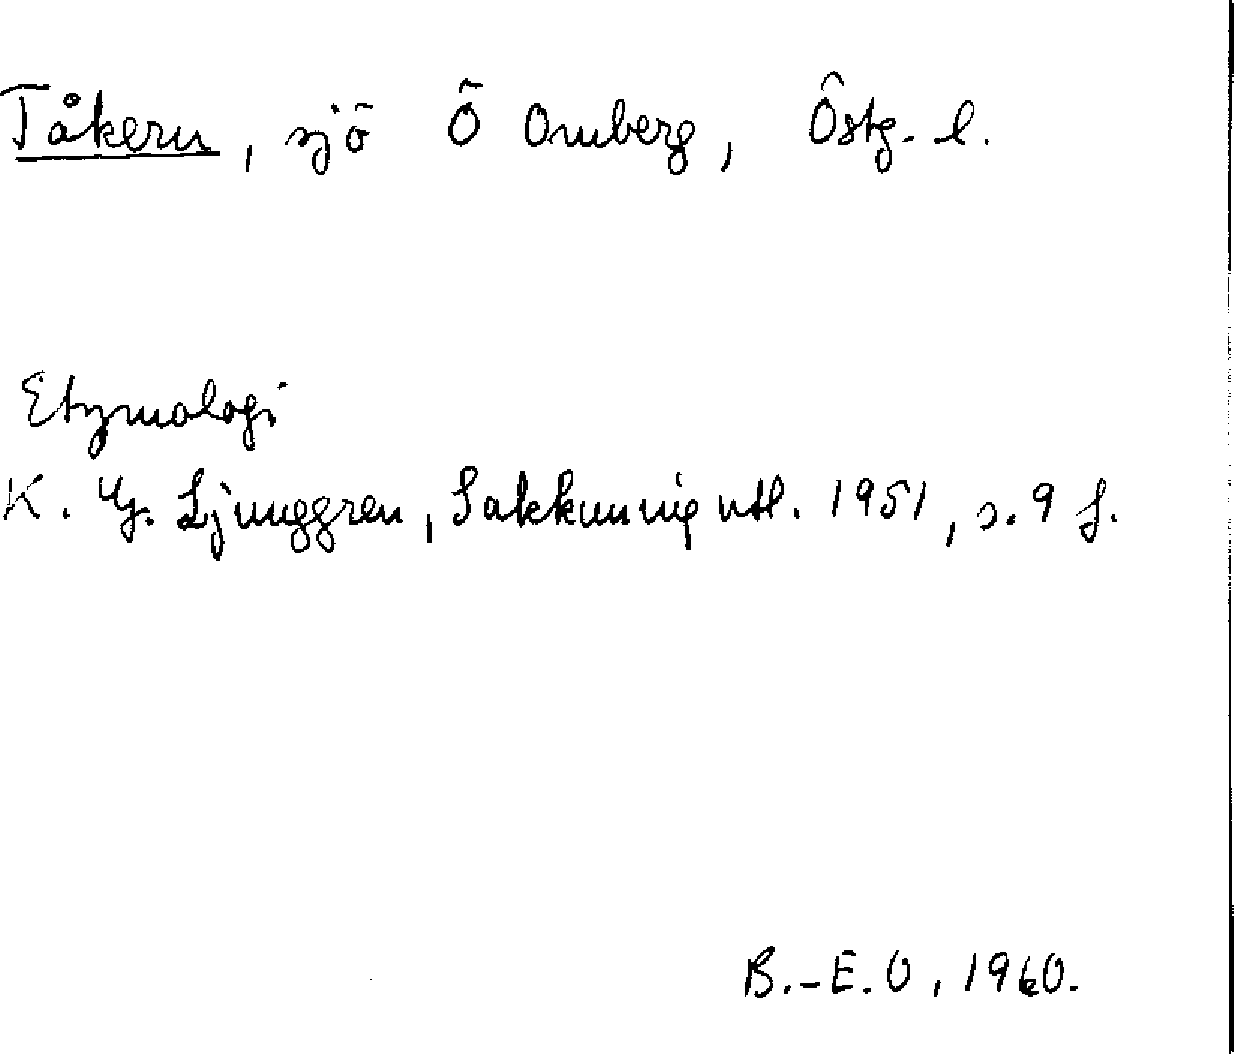 Tåkern, sjö Ö Omberg, Östg. l.
Etymologi
K. G. Ljunggren, Sakkunnig utl. 1951, s. 9 f.
B.-E. O, 1960.